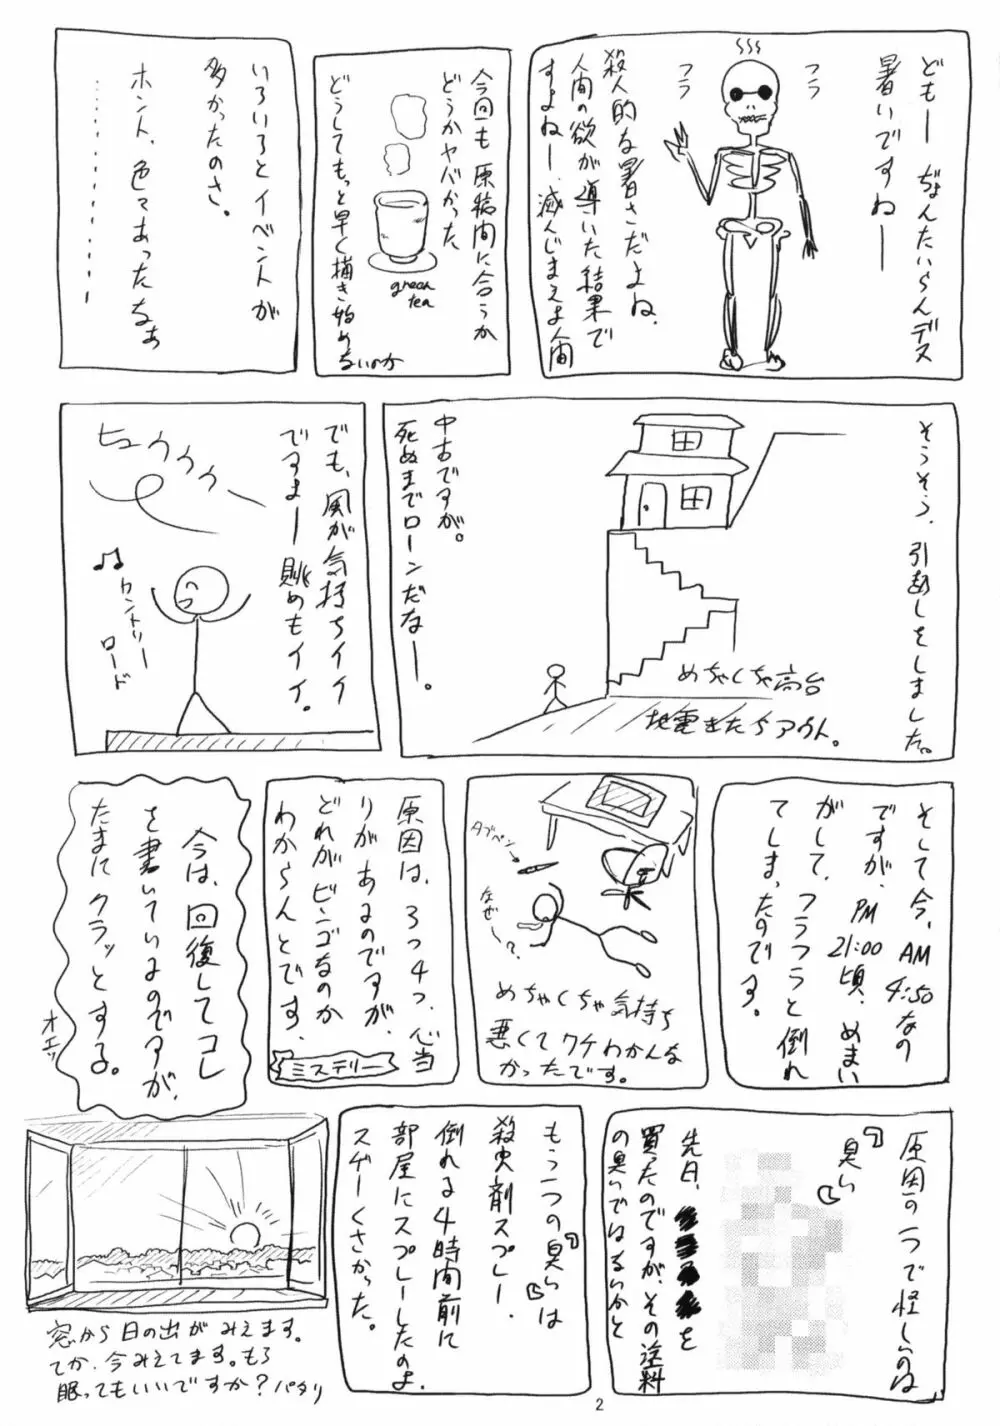 どもー ぢょんたいらんデス
暑いですねー
フラ
フラ
殺人的な暑さだよね、
人間の欲が導いた結果で
すよねー、滅んじまえよ人間
今回も原稿間に合うか
どうかヤバかった
green
tea
どうしてもっと早く描き始めないのか
いろいろとイベントが
多かったのさ。
ホント、色々あったなぁ
…………
そうそう、引越しをしました。
めちゃくちゃ高台
地震きたらアウト。
中古ですが。
死ぬまでローンだなー。
でも、風が気持ちイイ
ですよー 眺めもイイ。
ヒュウウウー
♫
カントリー
ロード
そして今、AM
4:50なの
ですが、PM
21:00頃、めまい
がして、フラフラと倒れ
てしまったのです。
タブペン
なぜー?
めちゃくちゃ気持ち
悪くてワケわかんな
かったです。
原因は、3つ4つ、心当
りがあるのですが、
どれがビンゴなのか
わからんとです。
ミステリー
今は、回復してコレ
を書いているのですが、
たまにクラッとする。
オエッ
原因の一つで怪しいのは
「臭い」
先日、
を
買ったのですが、その塗料
の臭いではないかと
もう一つの「臭い」は
殺虫剤スプレー、
倒れる4時間前に
部屋にスプレーしたのよ、
スゲーくさかった。
窓から日の出がみえます。
てか、今みえてます。もう
眠ってもいいですか?パタリ
2